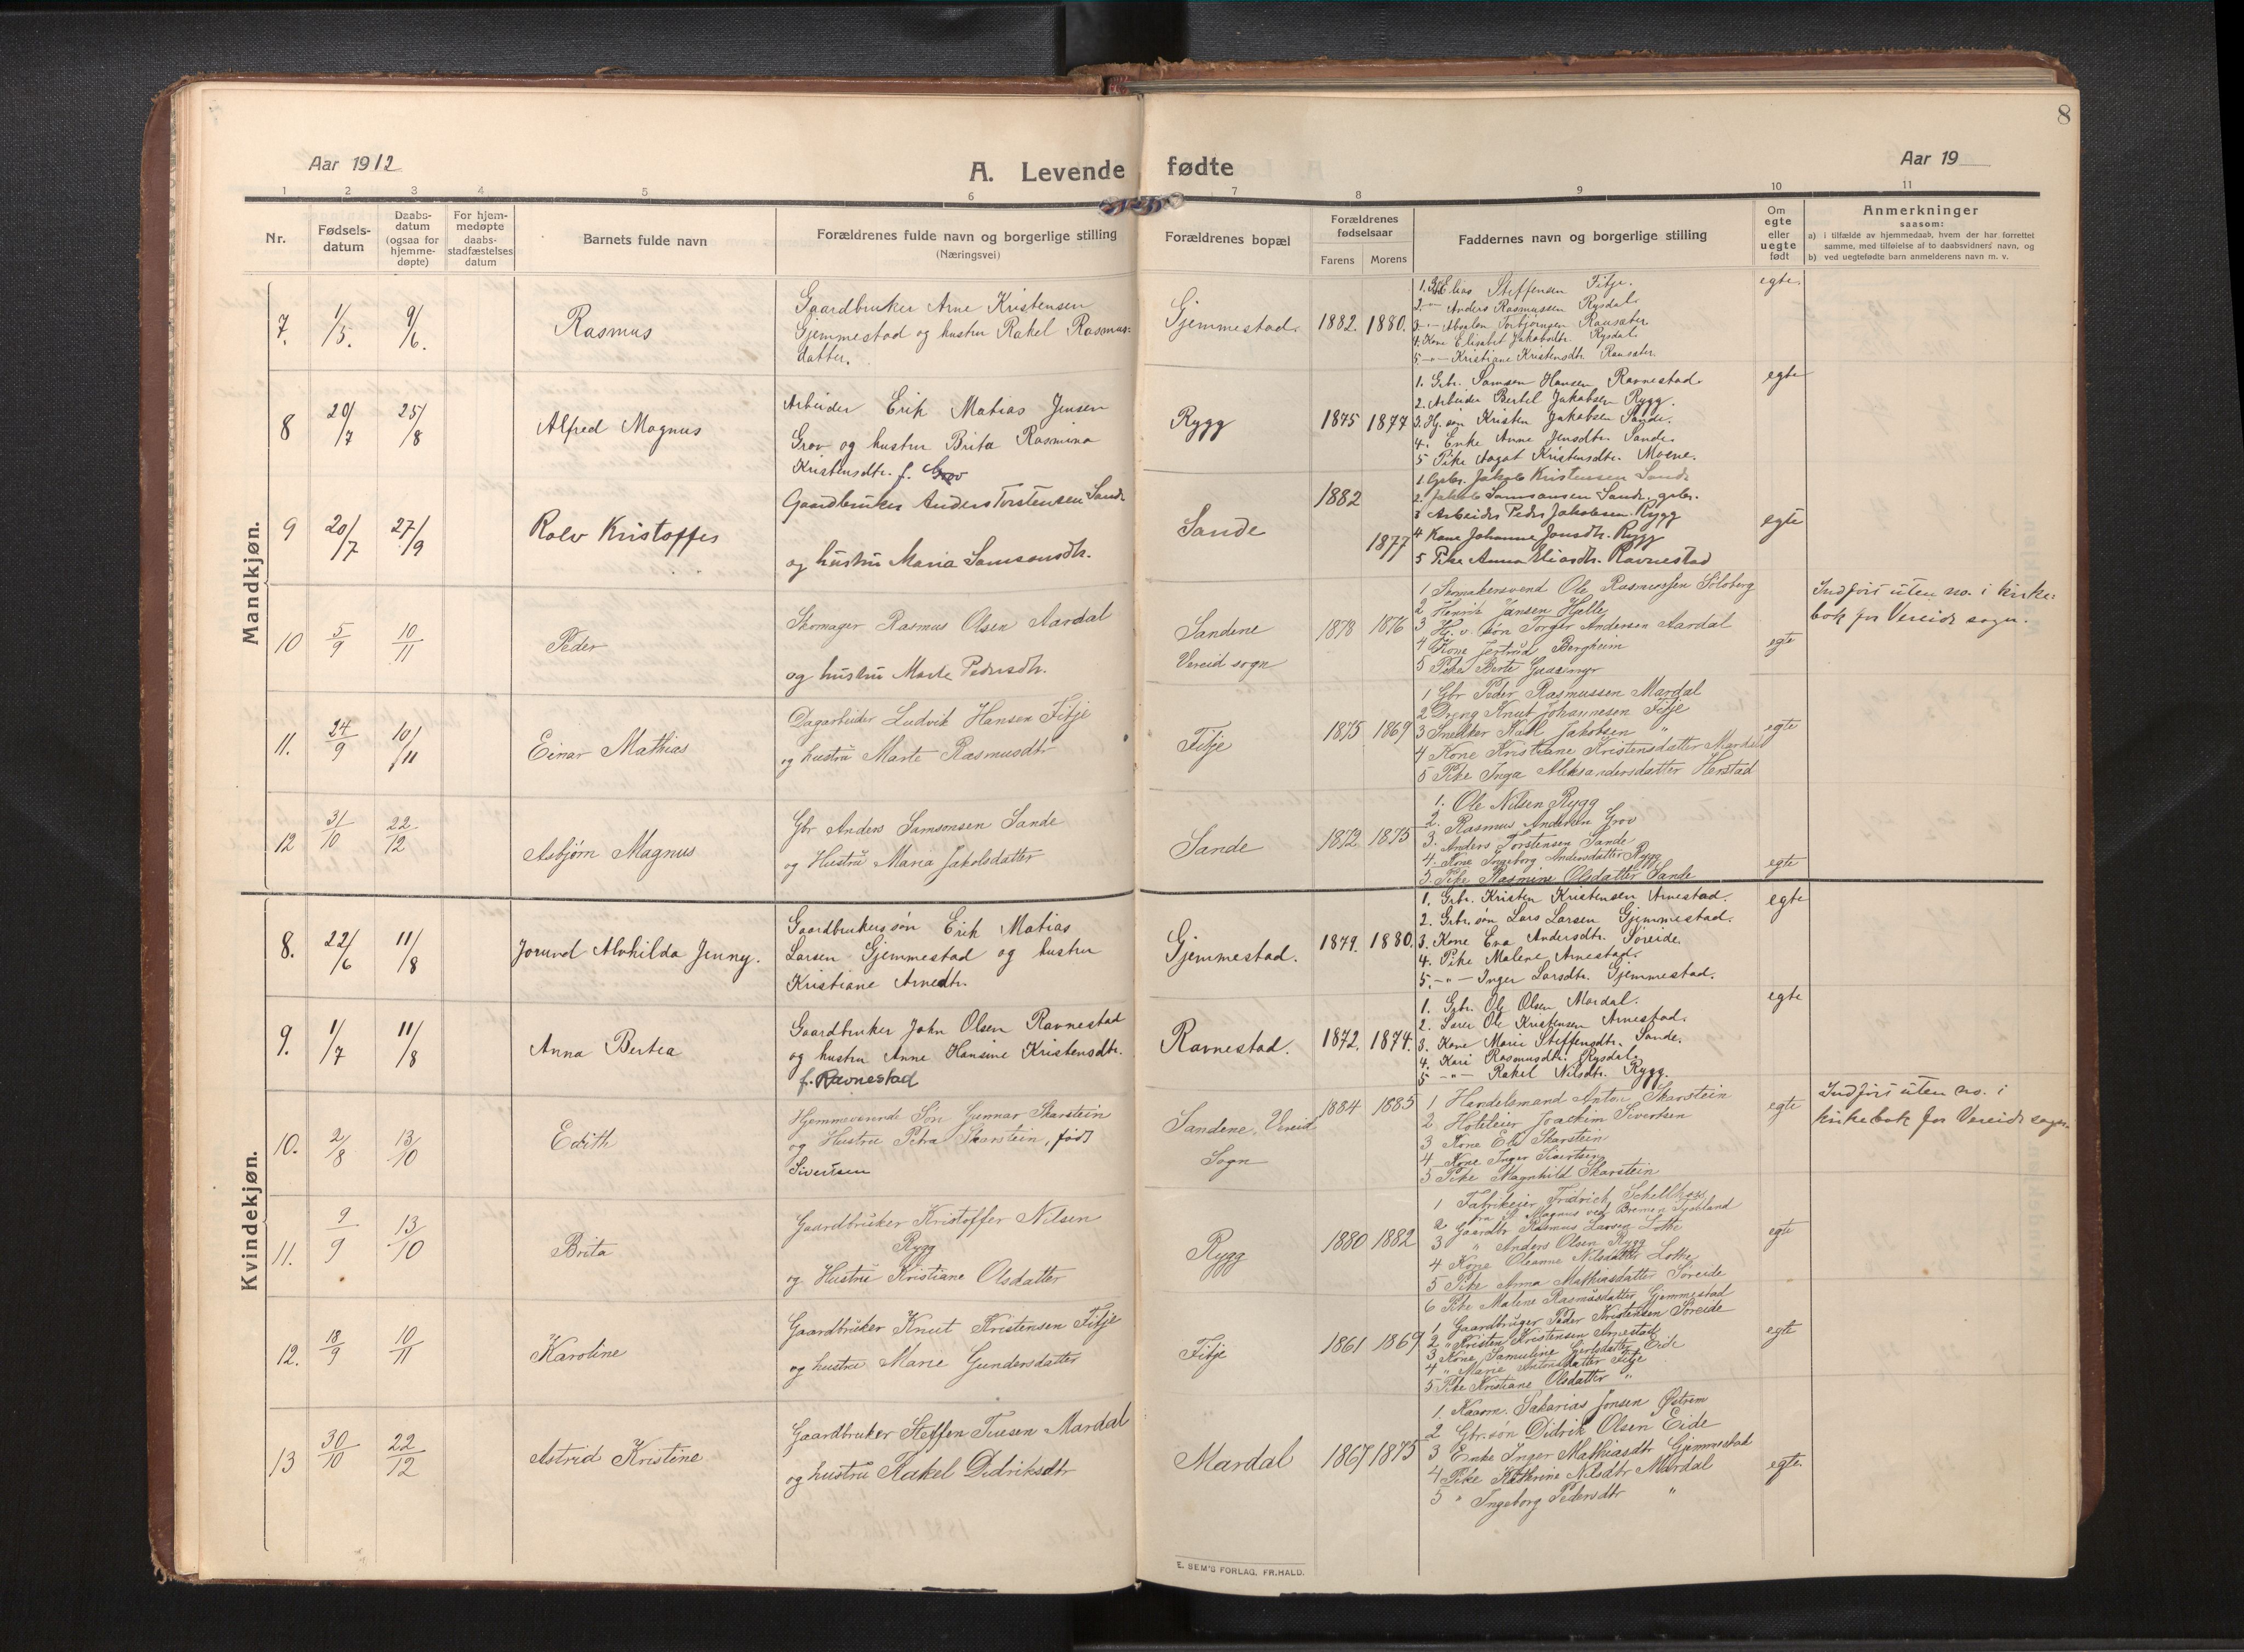 8
Aar 1912
A. Levende fødte
Aar 19
1 2 3 4 5 6 7 8 9 10 11
Nr.
Fødsels-
datum
Daabs-
datum
(ogsaa for
hjemme-
døpte)
For hjem-
medøpte
daabs-
stadfæstelses
datum
Barnets fulde navn
Forældrenes fulde navn og borgerlige stilling
(Næringsvei)
Forældrenes bopæl
Forældrenes
fødselsaar
Farens Morens
Faddernes navn og borgerlige stilling
Om
egte
eller
uegte
født
Anmerkninger
saasom:
a) i tilfælde av hjemmedaab, hvem der har forrettet
samme, med tilføielse af to daabsvidners navn, og
b) ved uegtefødte barn anmelderens navn m. v.
Mandkjøn.
7. 1/5. 9/6. Rasmus
Gaardbruker Arne Kristensen
Gjemmestad og hustru Rakel Rasmus-
datter.
Gjemmestad. 1882. 1880.
1. Elias Steffensen Fitje.
2 -"- Anders Rasmussen Rysdal.
3 -"- Absalon Torbjørnsen Ransæter
4. Kone Elisabet Jakobsdtr. Rysdal.
5 -"- Kristiane Kristensdtr. Ransæter.
egte.
8 20/7 25/8 Alfred Magnus
Arbeider Erik Matias Jensen
Grov og hustru Brita Rasmina
Kristensdtr. f. Grov
Rygg 1875 1877
1. Gbr. Samson Hansen Ravnestad.
2. Arbeider Bertel Jakobsen Rygg.
3. Hj. søn Kristen Jakobsen Sande.
4. Enke Anne Jensdtr. Sande.
5 Pike Aagot Kristensdtr. Moene.
egte
9 20/7 27/9 Rolv Kristoffer
Gaardbruker Anders Torstensen Sande
og hustru Maria Samsonsdtr.
Sande 1882 1877
1. Grbr. Jakob Kristensen Sande
2. Jakob Samsonsen Sande, grbr.
3 Arbeider Peder Jakobsen Rygg
4 Kone Johanne Jonsdtr. Rygg
5 Pike Anna Eliasdtr. Ravnestad
egte
10 5/9 10/11 Peder
Skomager Rasmus Olsen Aardal
og hustru Marte Pedersdtr.
Sandene
Vereid sogn
1878 1876
1 Skomakersvend Ole Rasmussen Soloberg
2 Henrik Jansen Hjelle
3 Hj. v. søn Torger Andersen Aardal
4 Kone Jertrud Bergheim
5 Pike Berte
egte
Indført uten no. i kirke-
bok for Vereide sogn.
11. 24/9 10/11 Einar Mathias
Dagarbeider Ludvik Hansen Fitje
og hustru Marte Rasmusdtr
Fitje 1875 1869
1 Gbr Peder Rasmussen Mardal
2 Dreng Knut Johannesen Fitje
3 Snedker Karl Jakobsen "
4 Kone Kristiane Kristensdatter Mardal
5 Pike Inga Aleksandersdatter Herstad
egte
12 31/10 22/12 Asbjørn Magnus
Gbr Anders Samsonsen Sande
og Hustru Maria Jakobsdatter
Sande 1872 1875
1. Ole Nilsen Rygg
2. Rasmus Andersen Grov
3. Anders Torstensen Sande
4. Kone Ingeborg Andersdatter Rygg
5. Pike Rasmine Olsdatter Sande
egte
Kvindekjøn.
8. 22/6 11/8 Jorund Alvhilda Jenny.
Gaardbrukersøn Erik Matias
Larsen Gjemmestad og hustru
Kristiane Arnedtr.
Gjemmestad. 1879. 1880.
1. Grbr. Kristen Kristensen Arnestad.
2. Grbr. søn Lars Larsen Gjemmestad.
3. Kone Eva Andersdtr. Søreide.
4. Pike Malene Arnestad.
5. -"- Inger Larsdtr. Gjemmestad.
egte
9. 1/7 11/8 Anna Bertea
Gaardbruker John Olsen Ravnestad
og hustru Anne Hansine Kristensdtr.
f. Ravnestad
Ravnestad. 1872. 1874.
1. Gbr. Ole Olsen Mardal.
2. Lærer Ole Kristensen Arnestad.
3. Kone Marie Steffensdtr. Sande.
4. Kari Rasmusdtr. Rysdal.
5 -"- Rakel Nilsdtr. Rygg.
egte
10. 2/8 13/10 Edith
Hjemmeværende Søn Gunnar Skarstein
og Hustru Petra Skarstein, født
Sivertsen
Sandene, Vereid
Sogn
1884 1885
1 Handelsmand Anton Skarstein
2 Hoteleier Joachim Sivertsen
3 Kone Eli Skarstein
4 Kone Inger Sivertsen
5 Pike Magnhild Skarstein
egte
Indført uten no. i
kirkebok for Vereide sogn.
11. 9/9 13/10 Brita
Gaardbruker Kristoffer Nilsen
Rygg
og Hustru Kristiane Olsdatter
Rygg 1880 1882
1 Fabrikeier Fredrich Schellhass
fra St. Magnus ved Bremen Tyskland
2 Gaardbr Rasmus Larsen Lotte
3 " Anders Olsen Rygg
4 Kone Oleanne Nilsdatter Lotte
5 Pike Anna Mathiasdatter Søreide
6 Pike Malene Rasmusdatter Gjemmestad
egte
12. 18/9 10/11 Karoline
Gaardbruker Knut Kristensen Fitje
og hustru Marie Gundersdatter
Fitje 1861 1869
1 Gaardbruger Peder Kristensen Søreide
2 " Kristen Kristensen Arnestad
3 Kone Samuline Gjertsdatter Eide
4 " Marie Antonsdatter Fitje
5 Pike Kristiane Olsdatter "
egte
13 30/10 22/12 Astrid Kristine
Gaardbruker Steffen Tuesen Mardal
og hustru Rakel Didriksdtr
Mardal 1867 1875
1. Kaarm. Sakarias Jonsen Østrem
2 Gbr. søn Didrik Olsen Eide
3 Enke Inger Mathiasdtr Gjemmestad
4 Pike Kathrine Nilsdtr Mardal
5 " Ingeborg Pedersdtr "
egte.
E. SEM'S FORLAG, FR.HALD.